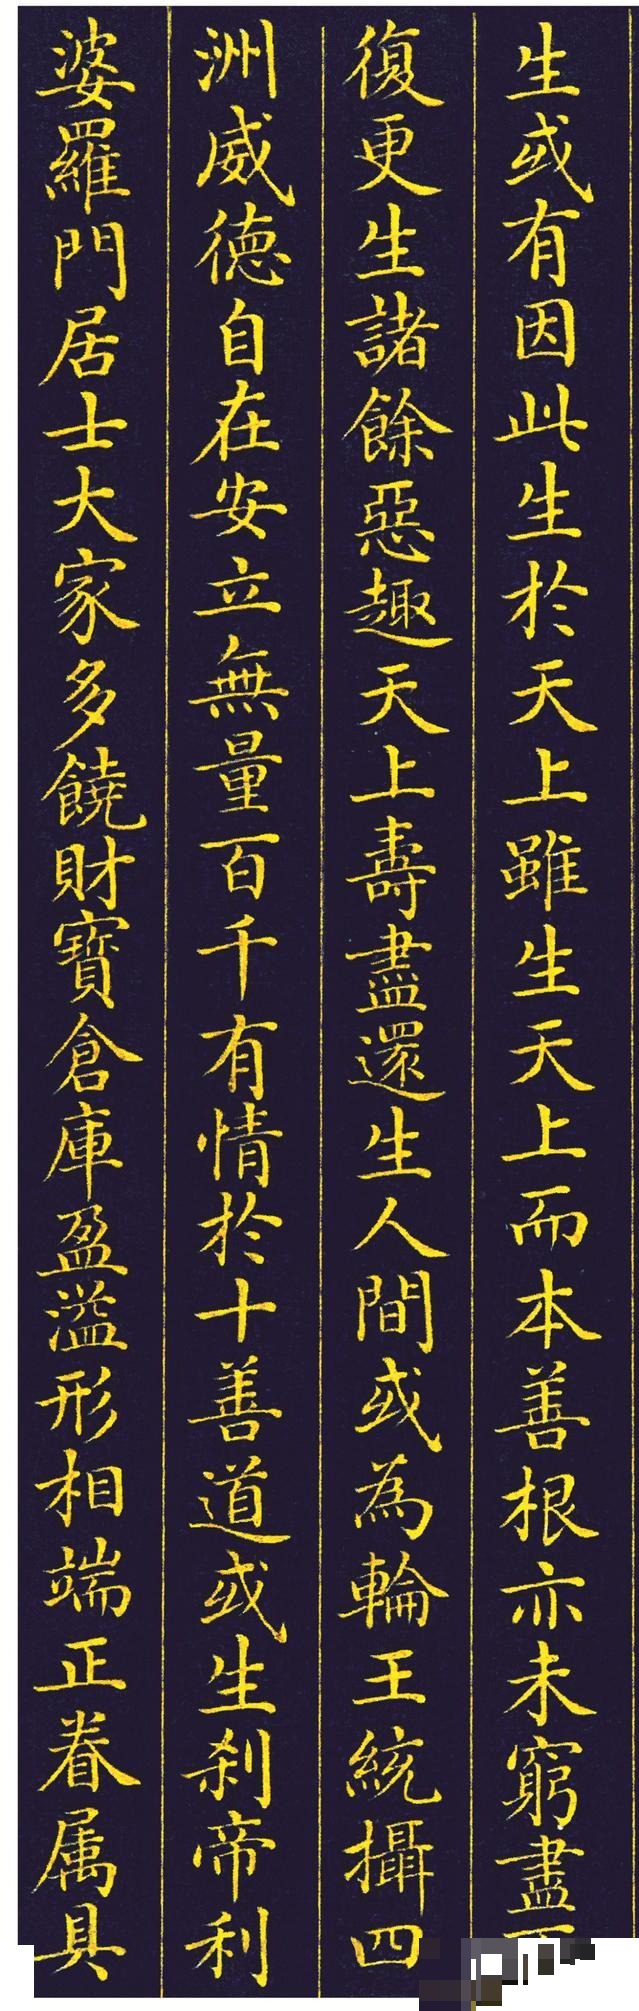 生或有因此生於天上雖生天上而本善根亦未窮盡
復更生諸餘惡趣天上壽盡還生人間或為輪王統攝四
洲威德自在安立無量百千有情於十善道或生剎帝利
婆羅門居士大家多饒財寶倉庫盈溢形相端正眷属具